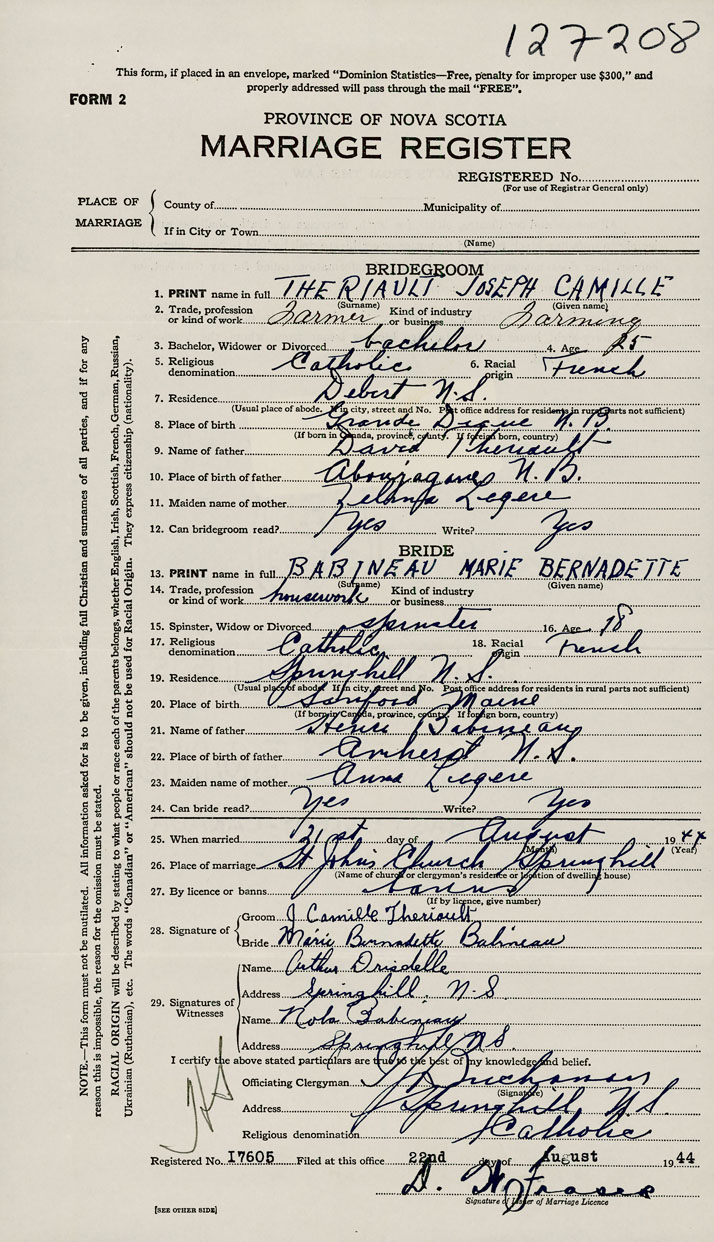 127208
This form, if placed in an envelope, marked "Dominion Statistics—Free, penalty for improper use $300," and
properly addressed will pass through the mail "FREE".
FORM 2
PROVINCE OF NOVA SCOTIA
MARRIAGE REGISTER
REGISTERED No.
(For use of Registrar General only)
PLACE OF MARRIAGE
County of Municipality of
If in City or Town
(Name)
BRIDEGROOM
1. PRINT name in full THERIAULT JOSEPH CAMILLE
(Surname) (Given name)
2. Trade, profession or kind of work Farmer Kind of industry or business Farming
3. Bachelor, Widower or Divorced bachelor 4. Age 25
5. Religious denomination Catholic 6. Racial origin French
7. Residence Debert N.S.
(Usual place of abode. If in city, street and No. Post office address for residents in rural parts not sufficient)
8. Place of birth Grande Digue N.B.
(If born in Canada, province, county. If foreign born, country)
9. Name of father David Theriault
10. Place of birth of father Aboujagane N.B.
11. Maiden name of mother Legere
12. Can bridegroom read? Yes Write? Yes
BRIDE
13. PRINT name in full BABINEAU MARIE BERNADETTE
(Surname) (Given name)
14. Trade, profession or kind of work housework Kind of industry or business
15. Spinster, Widow or Divorced spinster 16. Age 18
17. Religious denomination Catholic 18. Racial origin French
19. Residence Springhill N.S.
(Usual place of abode. If in city, street and No. Post office address for residents in rural parts not sufficient)
20. Place of birth Sanford Maine
(If born in Canada, province, county. If foreign born, country)
21. Name of father Henri Babineau
22. Place of birth of father Amherst N.S.
23. Maiden name of mother Anna Legere
24. Can bride read? Yes Write? Yes
25. When married 21st day of August 1944
(Month) (Year)
26. Place of marriage St Johns Church Springhill
(Name of church or clergyman's residence or location of dwelling house)
27. By licence or banns banns
(If by licence, give number)
28. Signature of
Groom J Camille Theriault
Bride Marie Bernadette Babineau
29. Signatures of Witnesses
Name Arthur Drisdelle
Address Springhill, N-S
Name Nola Babineau
Address Springhill N.S.
I certify the above stated particulars are true to the best of my knowledge and belief.
Officiating Clergyman Buchanan
(Signature)
Address Springhill N.S.
Religious denomination Catholic
Registered No. 17605 Filed at this office 22nd day of August 1944
D. W Fraser
Signature of Issuer of Marriage Licence
[SEE OTHER SIDE]
NOTE.—This form must not be mutilated. All information asked for is to be given, including full Christian and surnames of all parties, and if for any
reason this is impossible, the reason for the omission must be stated.
RACIAL ORIGIN will be described by stating to what people or race each of the parents belongs, whether English, Irish, Scottish, French, German, Russian,
Ukrainian (Ruthenian), etc. The words "Canadian" or "American" should not be used for Racial Origin. They express citizenship (nationality).